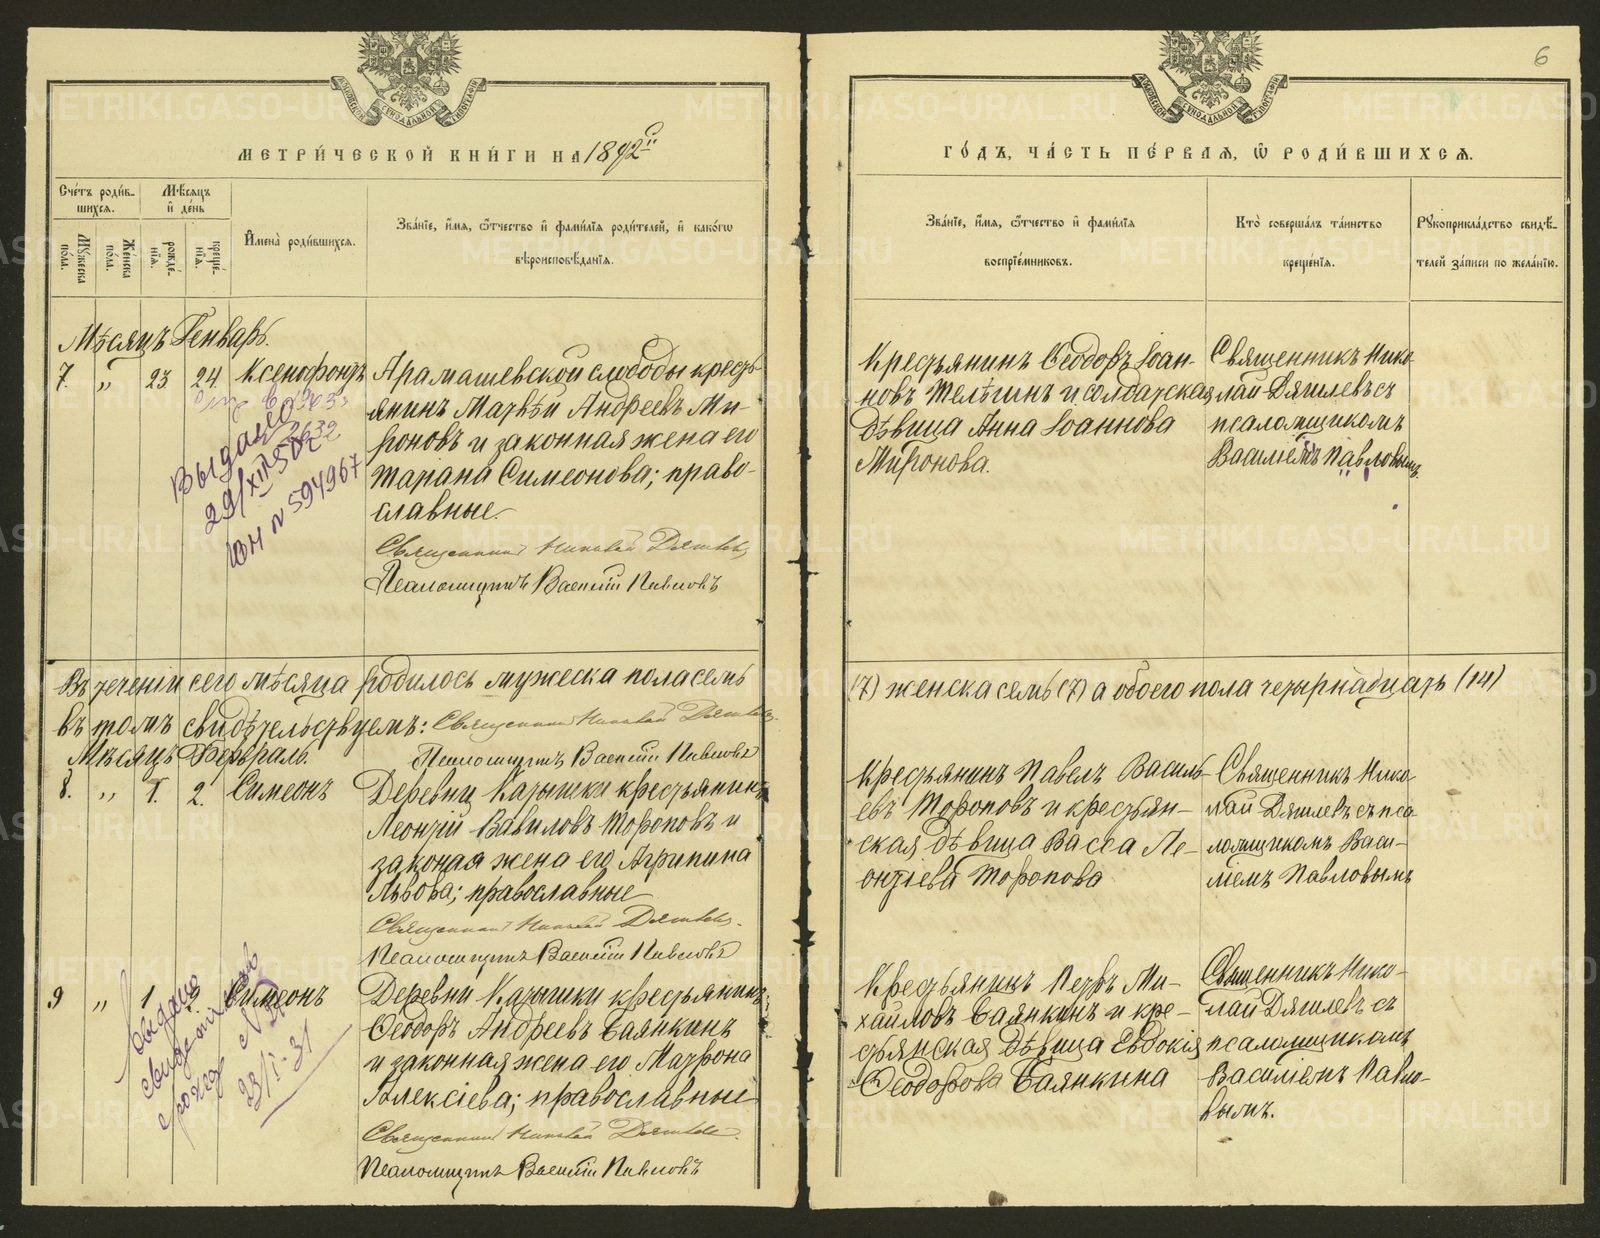 6
МЕТРИ́ЧЕСКОЙ КНИ́ГИ НА 1892й
ГО́ДЪ, ЧА́СТЬ ПЕ́РВАЯ, Ѡ РОДИ́ВШИХСЯ.
Сче́тъ роди́в-
шихся.
Мꙋжеска пола.
Же́нска пола.
Мѣ́сяцъ и́ де́нь
рожде́-
нїя.
креще́-
нїя.
И҆мена̀ роди́вшихся.
Зва́нїе, и҆́мя, ѻ҆́тчество и҆ фами́лїя роди́телей, и҆ како́гѡ
вѣроисповѣ́данїя.
Зва́нїе, и҆́мя, ѻ҆́тчество и҆ фами́лїя
воспрїе́мниковъ.
Кто̀ соверша́лъ та́инство
креще́нїя.
Рꙋкоприкла́дство свидѣ́-
телей за́писи по жела́нїю.
Мѣсяцъ Генварь.
7. „ 23 24 Ксенофонтъ
Арамашевской слободы кресть-
янинъ Матвѣй Андреевъ Ми-
роновъ и законная жена его
Марана Симеонова; право-
славные.
Священникъ Николай Дягилевъ
Псаломщикъ Василій Павловъ
Крестьянинъ Ѳеодоръ Іоан-
новъ Телѣгинъ и солдатская
дѣвица Анна Іоаннова
Миронова.
Священникъ Нико-
лай Дягилевъ съ
псаломщикомъ
Василіемъ Павловымъ
Выдано
29/XII 50 г.
ЮН № 594967
Въ теченіи сего мѣсяца родилось мужеска пола семь
(7) женска семь (7) а обоего пола четырнадцать (14)
въ томъ свидѣтельствуемъ: Священникъ Николай Дягилевъ
Псаломщикъ Василій Павловъ
Мѣсяцъ Февраль.
8. „ 1. 2. Симеонъ
Деревни Катышки крестьянинъ
Леонтій Вавиловъ Тороповъ и
законая жена его Агрипина
Львова; православные
Священникъ Николай Дягилевъ.
Псаломщикъ Василій Павловъ
Крестьянинъ Павелъ Василь-
евъ Тороповъ и крестьян-
ская дѣвица Васса Ле-
онтіева Торопова
Священникъ Нико-
лай Дягилевъ съ пса-
ломщикомъ Васи-
ліемъ Павловымъ
9 „ 1 Симеонъ
Деревни Катышки крестьянинъ
Ѳеодоръ Андреевъ Баянкинъ
и законная жена его Матрона
Алексіева; православные
Священникъ Николай Дягилевъ.
Псаломщикъ Василій Павловъ
Крестьянинъ Петръ Ми-
хайловъ Баянкинъ и кре-
стьянская дѣвица Евдокія
Ѳеодорова Баянкина
Священникъ Нико-
лай Дягилевъ съ
псаломщикомъ
Василіемъ Павло-
вымъ.
выдано
23/I-31
METRIKI.GASO-URAL.RU